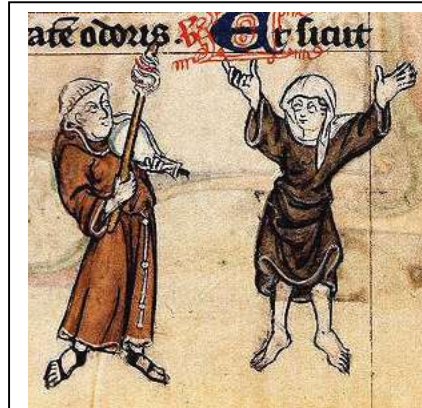 atē odoris. Et sicut